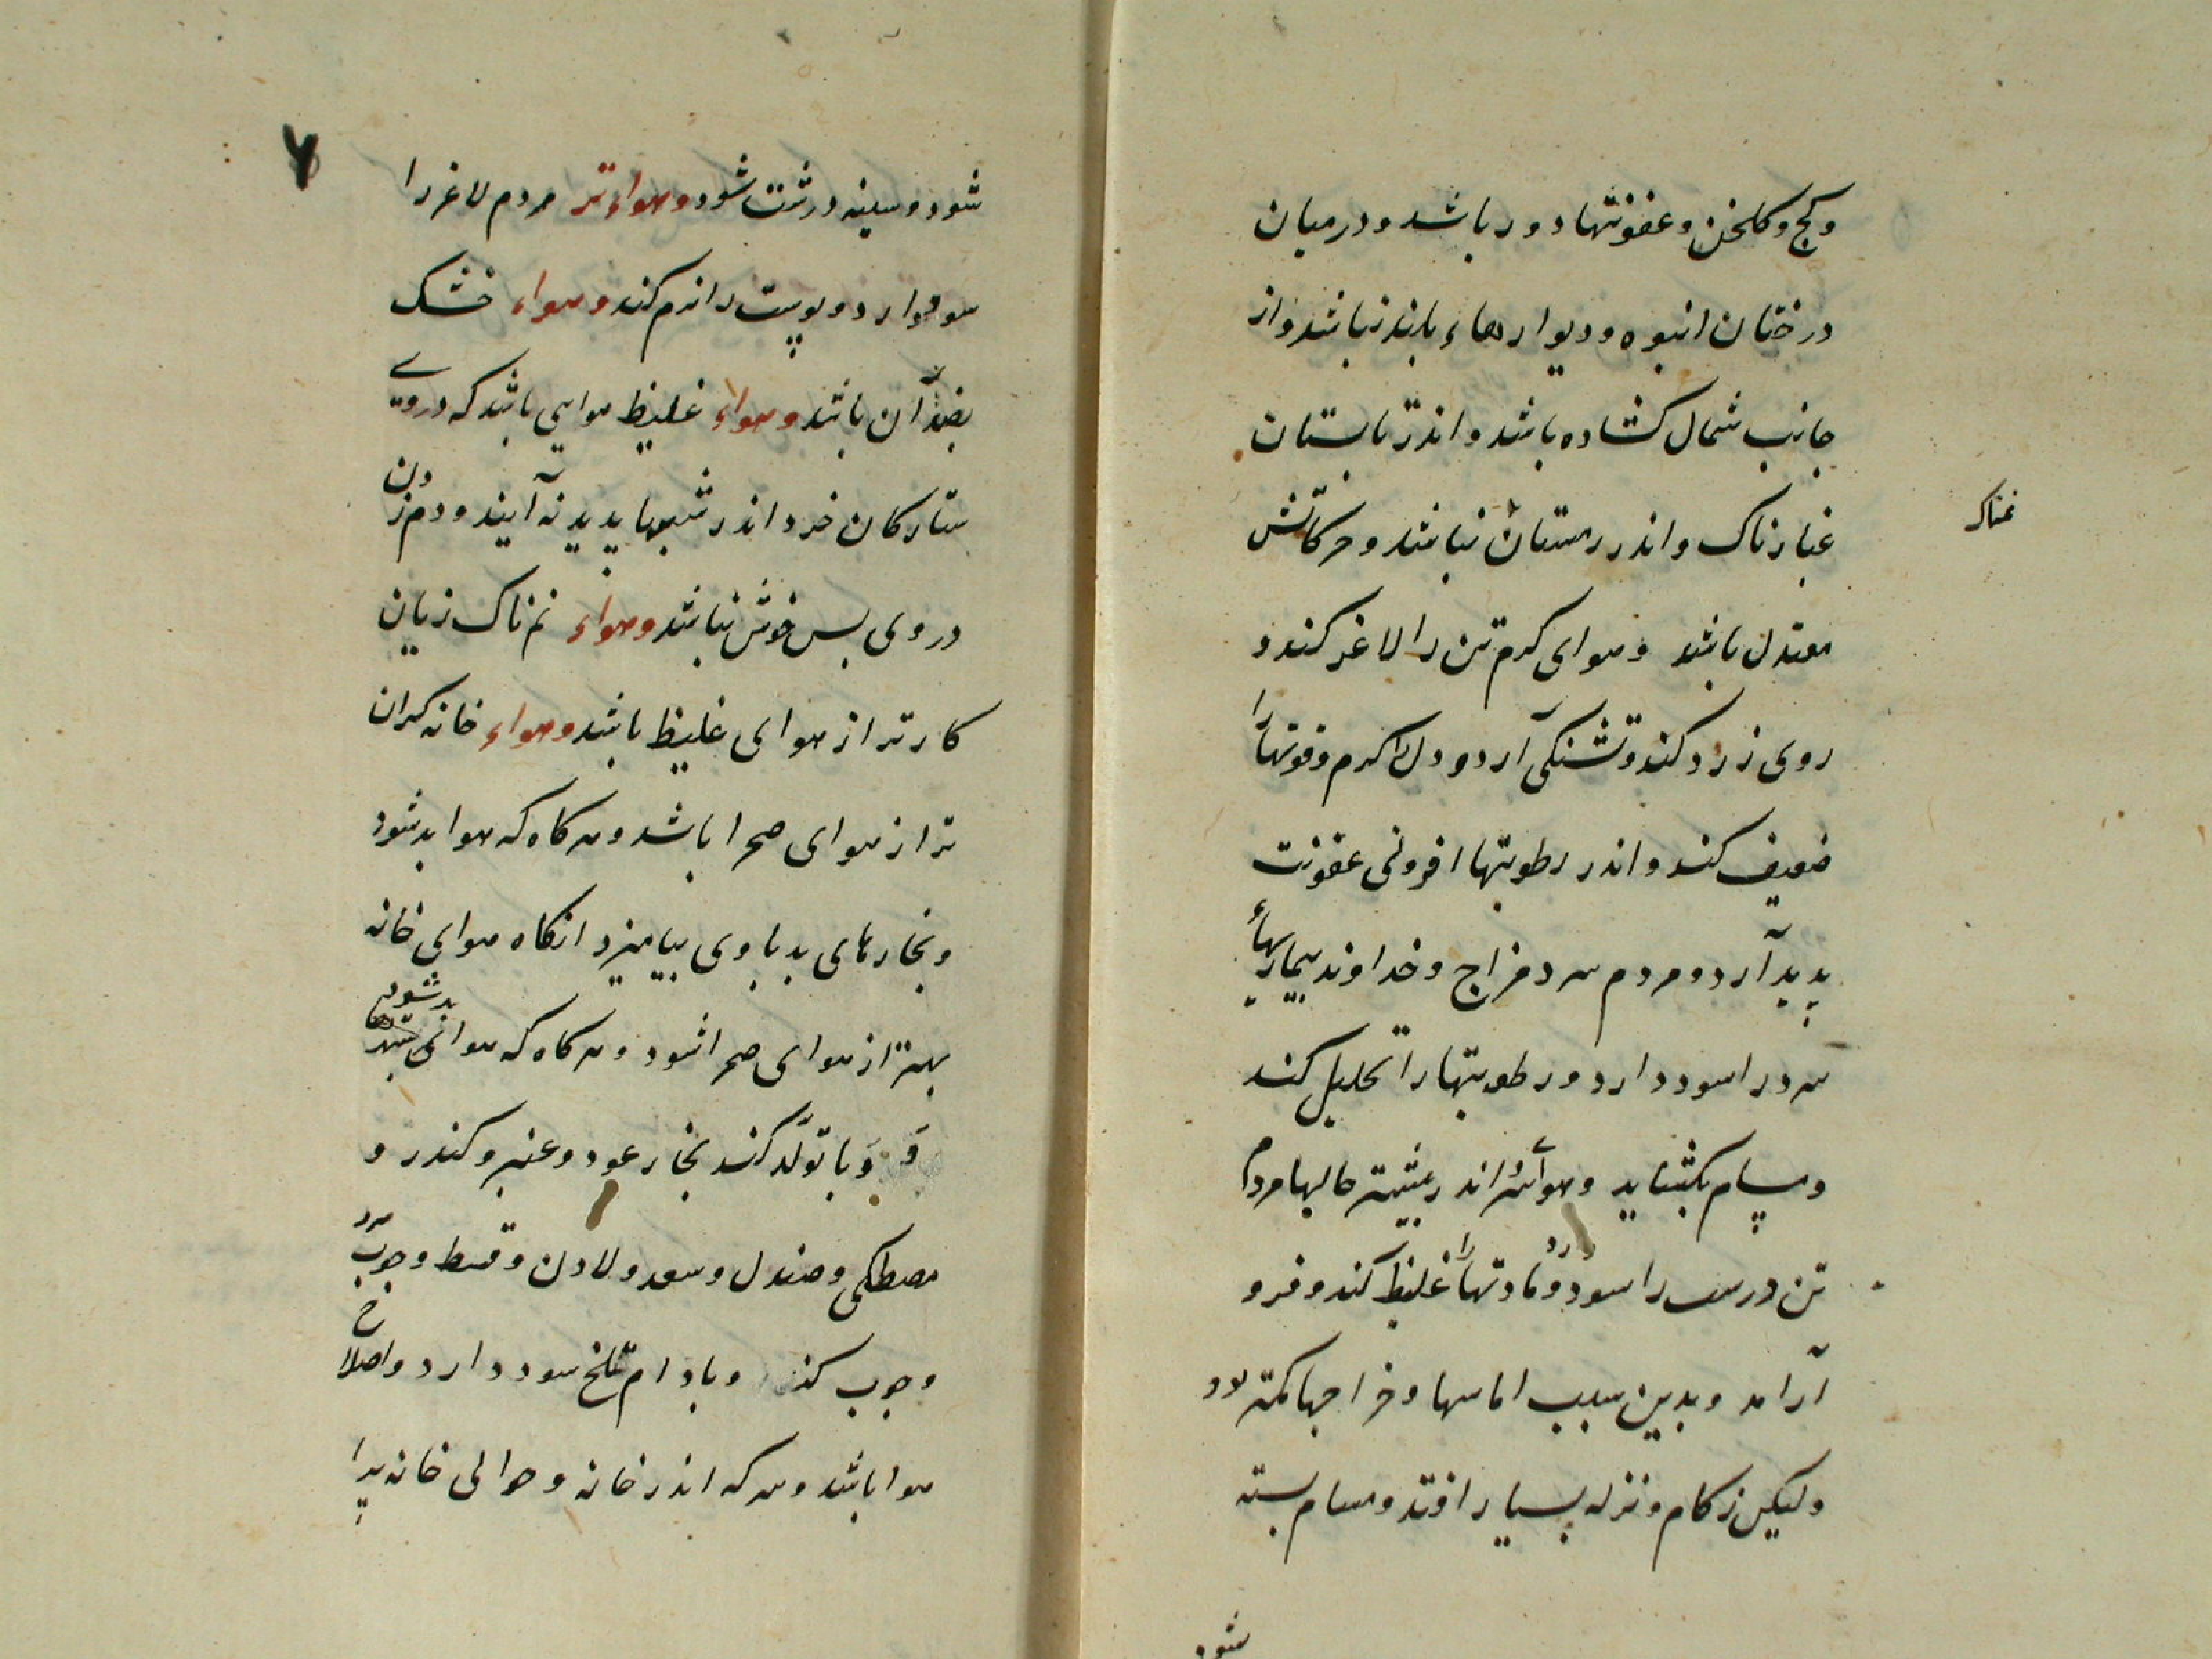 وکچ و کلخن و عفونتها دور باشد و درمیان
درختان انبوه و دیوارهاء بلند نباشد و از
جانب شمال کشاده باشد و اندر تابستان
غبارناک و اندر زمستان نمناک نباشد و حرکاتش
معتدل باشد و هوای کرم تن را لاغر کند و
روی زرد کند و تشنکی آرد و دل را کرم و قوتها را
ضعیف کند و اندر رطوبتها افزونی عفونت
پدید آرد و مردم سرد مزاج و خداوند بیماریهاء
سرد را سود دارد و رطوبتها را تحلیل کند
و مسام بکشاید و هوای سرد اندر بیشتر حالها مردم
تن درست را سود دارد و مادتها را غلیظ کند و فرو
آرامد و بدین سبب اماسها و خراجها کمتر بود
ولیکن زکام و نزله بسیار افتد و مسام بسته
شود
شود و سینه درشت شود و هواء تر مردم لاغر را
موفق دارد و پوست را نرم کند و هواء خشک
بضد آن باشد و هواء غلیظ هوایی باشد که در وی
ستارکان خرد اندر شبها پدید نه آیند و دم زدن
در وی بس خوش نباشد و هواء نم ناک زیان
کارتر از هوای غلیظ باشد و هواء خانه کران
تر از هوای صحرا باشد و هر کاه که هوا بد شود
و بخارهای بد با وی بیامیزد انکاه هوای خانه
بهتر از هوای صحرا شود و هر کاه که هوای شهرها بد شود
و وبا تولد کند بخار عود و عنبر و کندر و
مصطکی و صندل و سعد و لادن و قسط و چوب سرو
و چوب کز و بادام تلخ سود دارد و اصلاح
هوا باشد و سرکه اندر خانه و حوالی خانه پدا